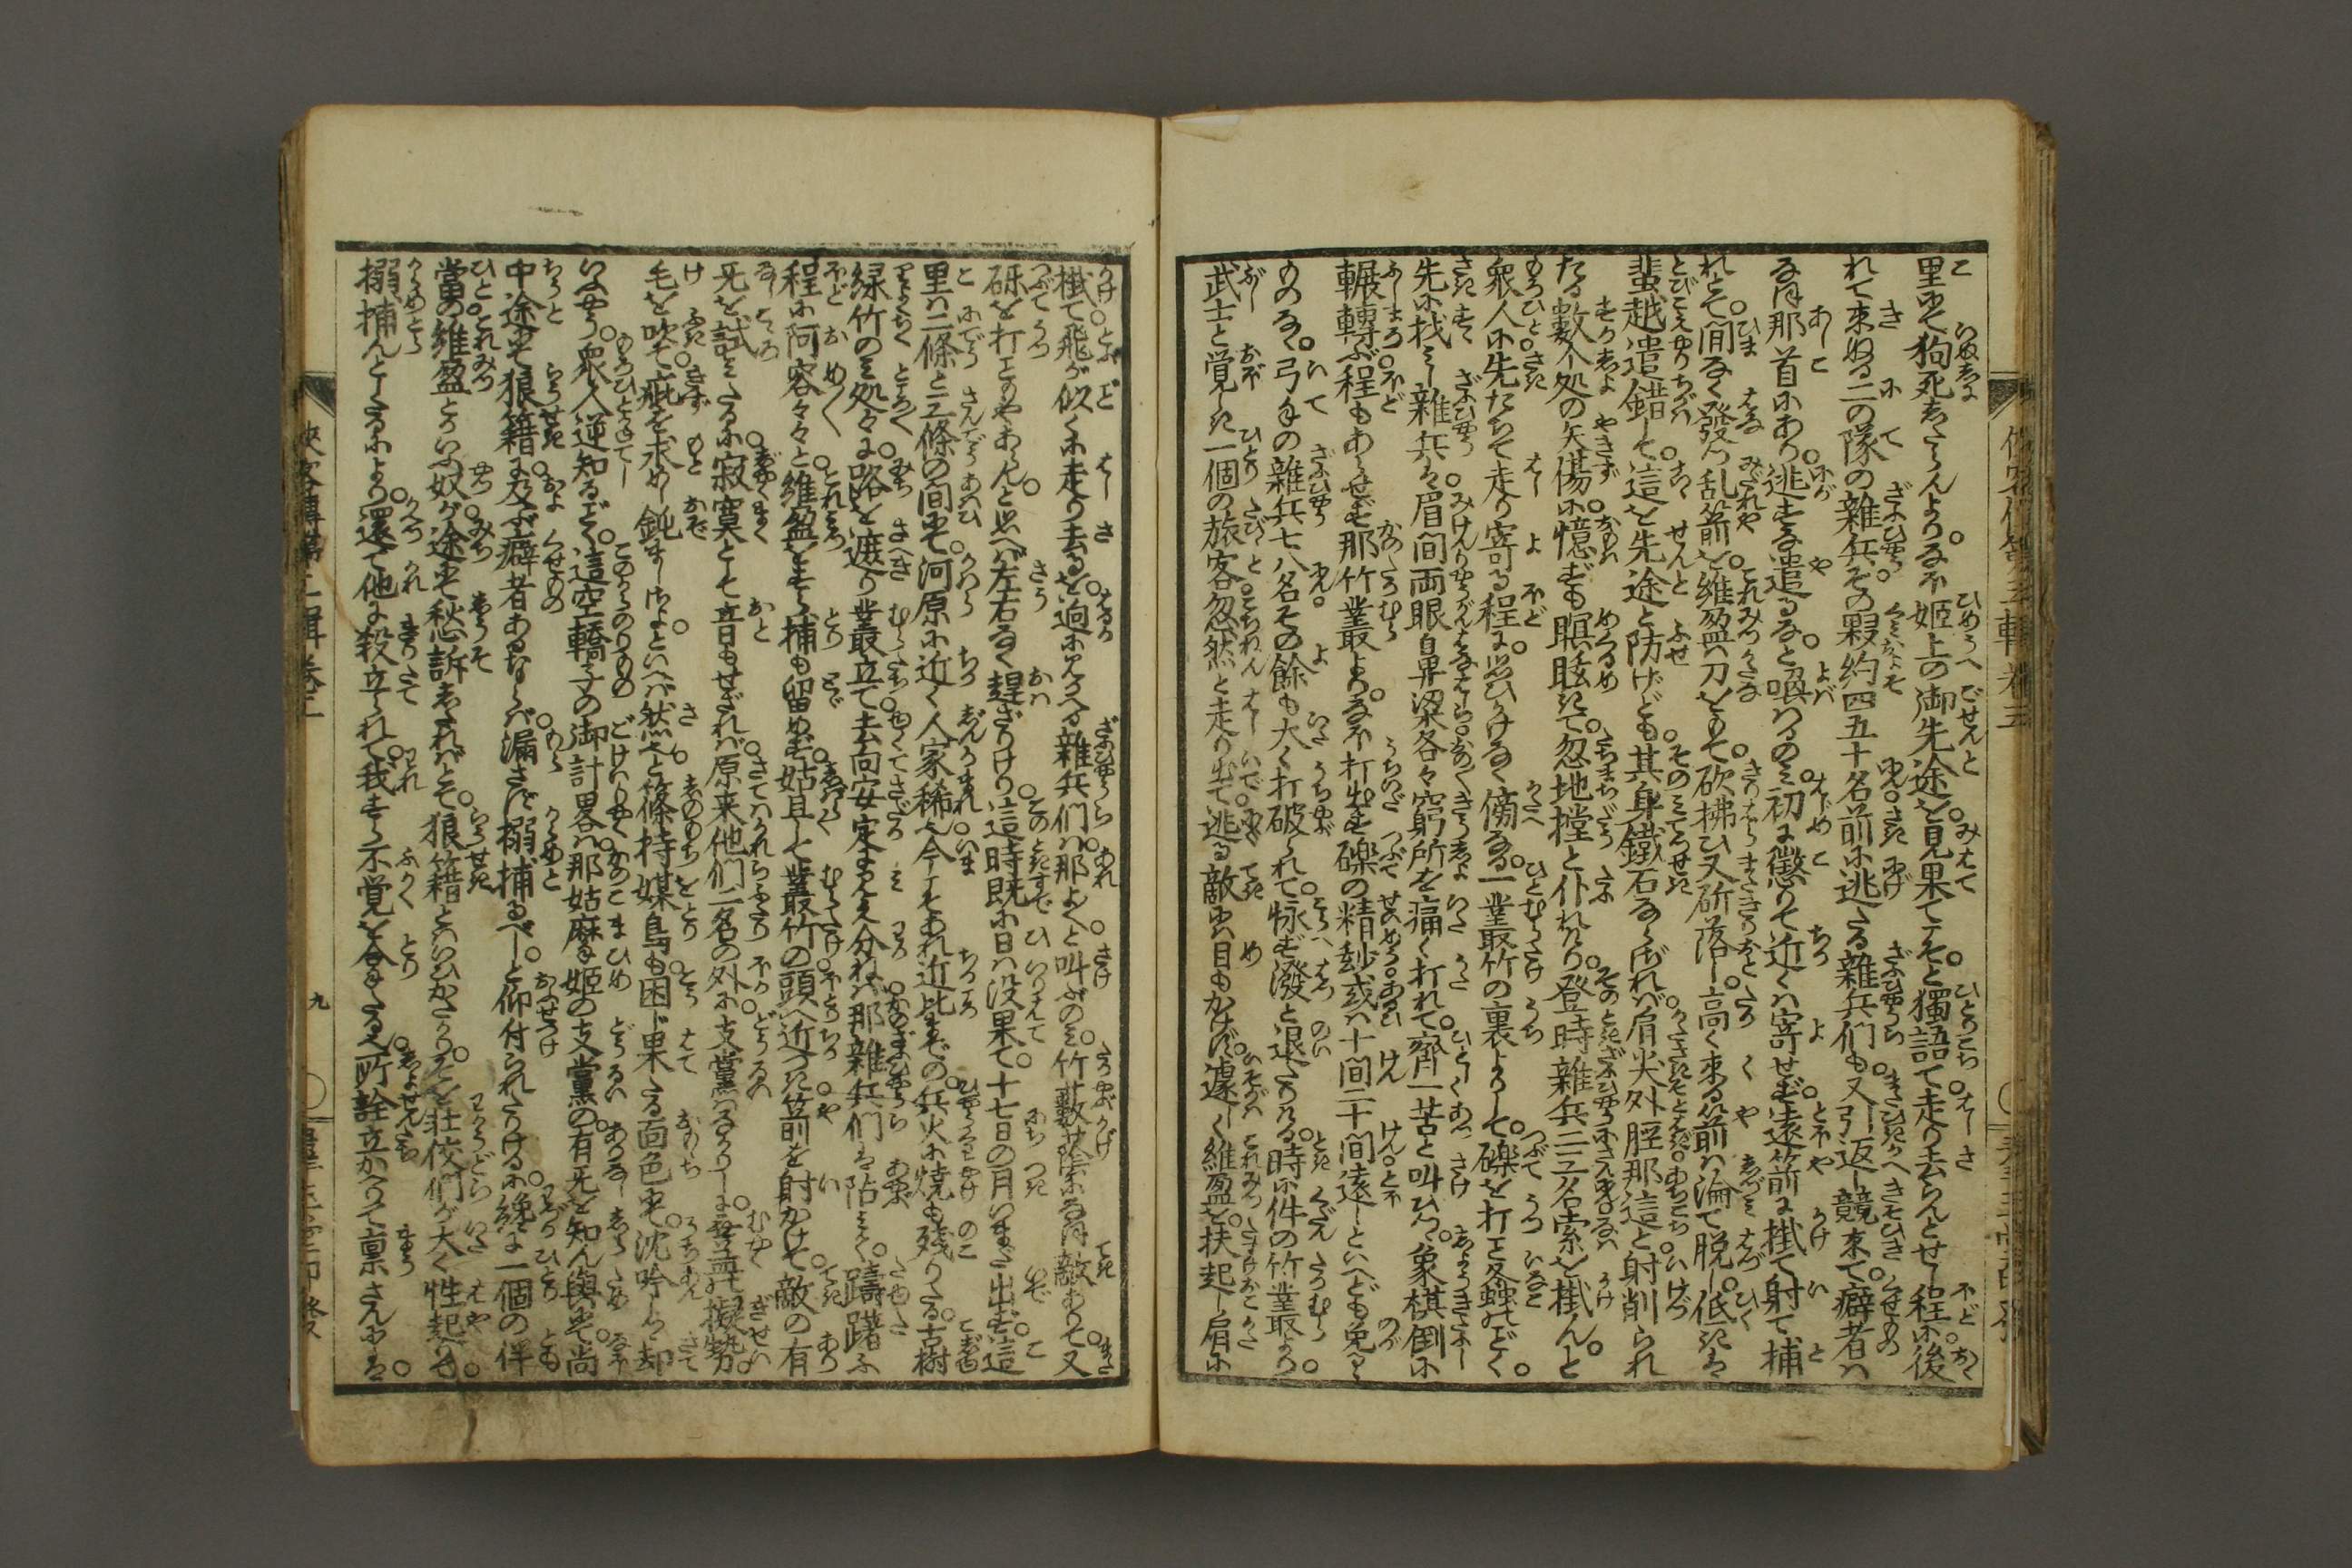 里にて狗死をさんより。なほ姫上の御先途を見果てこそと。獨語て走り去らんとせし程に後
れて來ぬる二の隊の雜兵。その夥約四五十名前に逃たる雜兵們も。又引返し競來て。癖者ハ
なほ那首にあり。逃すな遣るなと喚ハるのミ。初に懲りて近くハ寄せず。遠箭に掛て射て捕
れとて。間なく發つ乱箭を。維盈刀をもて。砍拂ひ又斫落し。高く來る箭ハ淪て脱し。低きは
蜚越遣錯して。這を先途と防げども。其身鐵石ならざれバ。肩尖外脛那這と射削られ
たる數个処の矢傷に。憶ずも瞑眩きて。忽地撑と仆れけり。登時雜兵二三名索を掛んと
衆人に先たちて走り寄る程に。思ひかけなく傍なる。一叢竹の裏よりして。礫を打こと蝗のごとく。
先に找ミし雜兵は。眉間両眼鼻梁各々窮所を痛く打れて。齊一苦と叫びつ。象棋倒に
輾轉ぶ程もあらせず。那竹叢より。なほ打出す礫の精妙。或ハ十間二十間遠しといへども免るゝ
ものなく。弓手の雜兵七八名その餘も大く打破られて。怺ず潑と退たりける。時に件の竹叢より
武士と覚しき一個の旅客忽然と走り出て。逃る敵にハ目もかけず。遽しく維盈を。扶起し肩に
掛て飛が似くに走り去るを。迥に見つゝ雜兵們ハ。那よ〳〵と叫ぶのミ。竹藪蔭になほ敵ありて。又
礫を打こともやあらんと思へバ左右なく趕ざりけり。這時既に日ハ没果て。十七日の月いまだ出ず。這
里ハ二條と三條の間にて。河原に近く人家稀也。今こそあれ近比までの。兵火に焼も残りたる。古樹
緑竹のミ処々に。路を遮り叢立て。去向安定に見え分ねバ。那雜兵們は阽ミて。躊躇ふ
程に。阿容々々と維盈をすら捕も留めず。姑且して叢竹の頭へ近つき。箭を射かけて。敵の有
无を試ミたるに。寂寞として音もせざれバ。原来他們二名の外に。支黨ハなかりしに。無益の擬勢。
毛を吹て疵を求めし。鈍ましさよ。といへバ然也と篠持媒鳥も。困じ果たる面色にて。沈吟しつゝ却
いふやう。衆人逆知るごとく。這空轎子の御計畧ハ。那姑麻姫の支黨の。有无を知ん與にて。尚
中途にて狼籍に及ぶ。癖者あるならバ。漏さず搦捕るべし。と仰付られたりけるに。纔に一個の伴
當の維盈とかいふ奴が。途にて愁訴をしたれバとて。狼籍とハいひがたかり。そを壮佼們が大く性起りて。
搦捕んとしたるによりて。還て他に殺立られて。我すら不覚を合ミたる。所詮立かへりて。稟さんには。
俠客傳第三輯巻三
九
俠客傳第三輯巻三